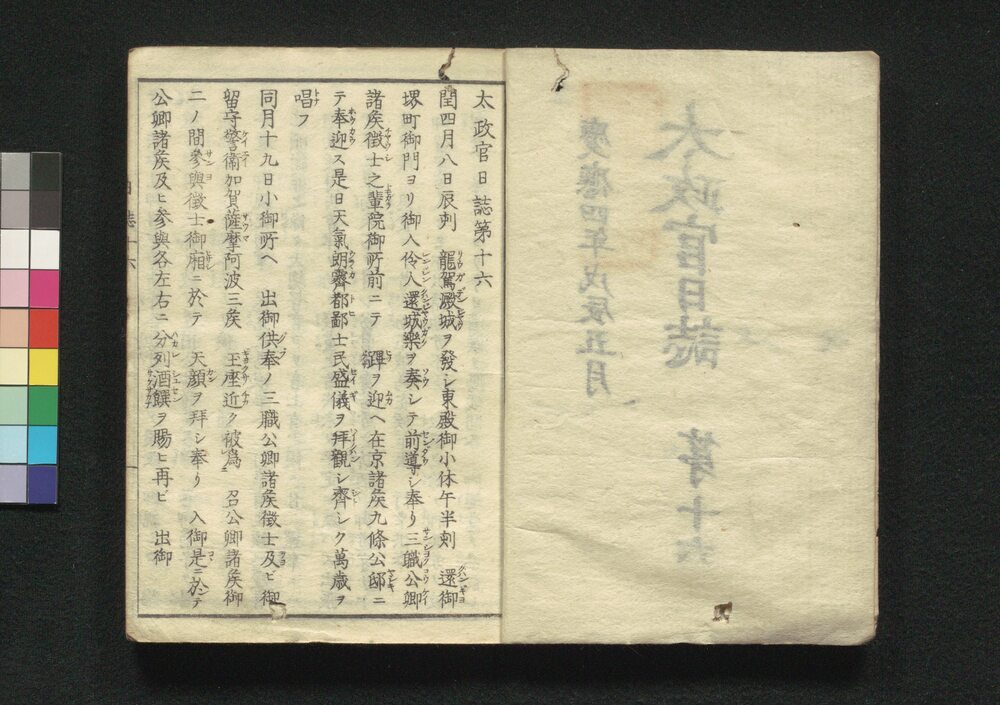 太政官日誌第十六
閏四月八日辰刻　龍駕澱城ヲ發シ東殿御小休午半刻　還御
堺町御門ヨリ御入伶人還城樂ヲ奏シテ前導シ奉リ三職公卿
諸矦徴士之輩院御所前ニテ　蹕ヲ迎ヘ在京諸矦九條公邸ニ
テ奉迎ス是日天氣朗霽都鄙士民盛儀ヲ拜觀シ齊シク萬歳ヲ
唱フ
同月十九日小御所ヘ　出御供奉ノ三職公卿諸矦徴士及ビ御
留守警衞加賀薩摩阿波三矦　玉座近ク被爲　召公卿諸矦御
二ノ間參與徴士御廂ニ於テ　天顔ヲ拜シ奉リ　入御是ニ於テ
公卿諸矦及ヒ參與各左右ニ分列酒饌ヲ賜ヒ再ビ　出御
太政官日誌　第十六
慶應四年戊辰五月